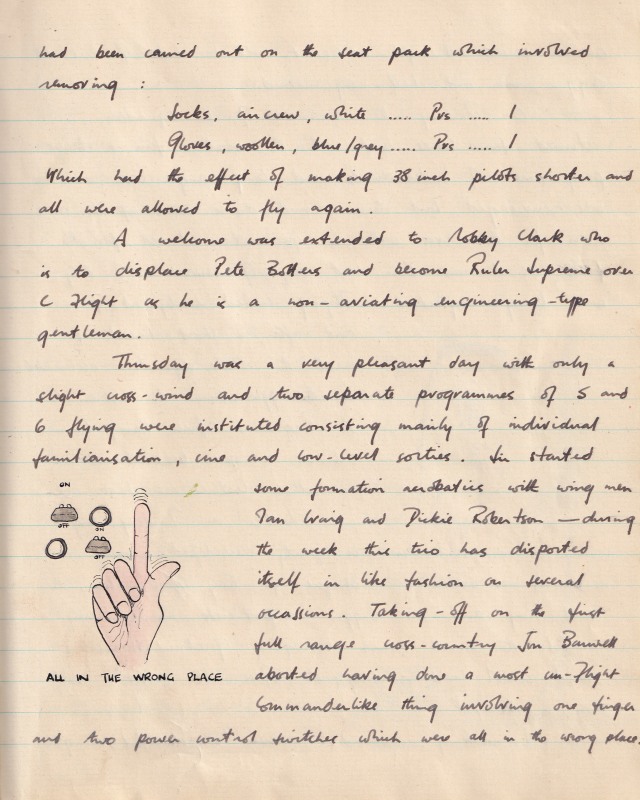 had been carried out on the seat pack which involved
removing :
Socks, aircrew, white ..... Prs ..... 1
Gloves, woollen, blue/grey ..... Prs ..... 1
Which had the effect of making 38 inch pilots shorter and
all were allowed to fly again.
A welcome was extended to Robby Clark who
is to displace Pete Botters and become Ruler Supreme over
C Flight as he is a non-aviating engineering-type
gentleman.
Thursday was a very pleasant day with only a
slight cross-wind and two separate programmes of 5 and
6 flying were instituted consisting mainly of individual
familiarisation, cine and low-level sorties. Jin started
some formation aerobatics with wing men
Ian Craig and Dickie Robertson — during
the week this trio has disported
itself in like fashion on several
occassions. Taking-off on the first
full range cross-country Jon Barwell
aborted having done a most un-Flight
Commanderlike thing involving one finger
and two power control switches which were all in the wrong place.
ON
OFF
ON
OFF
ALL IN THE WRONG PLACE